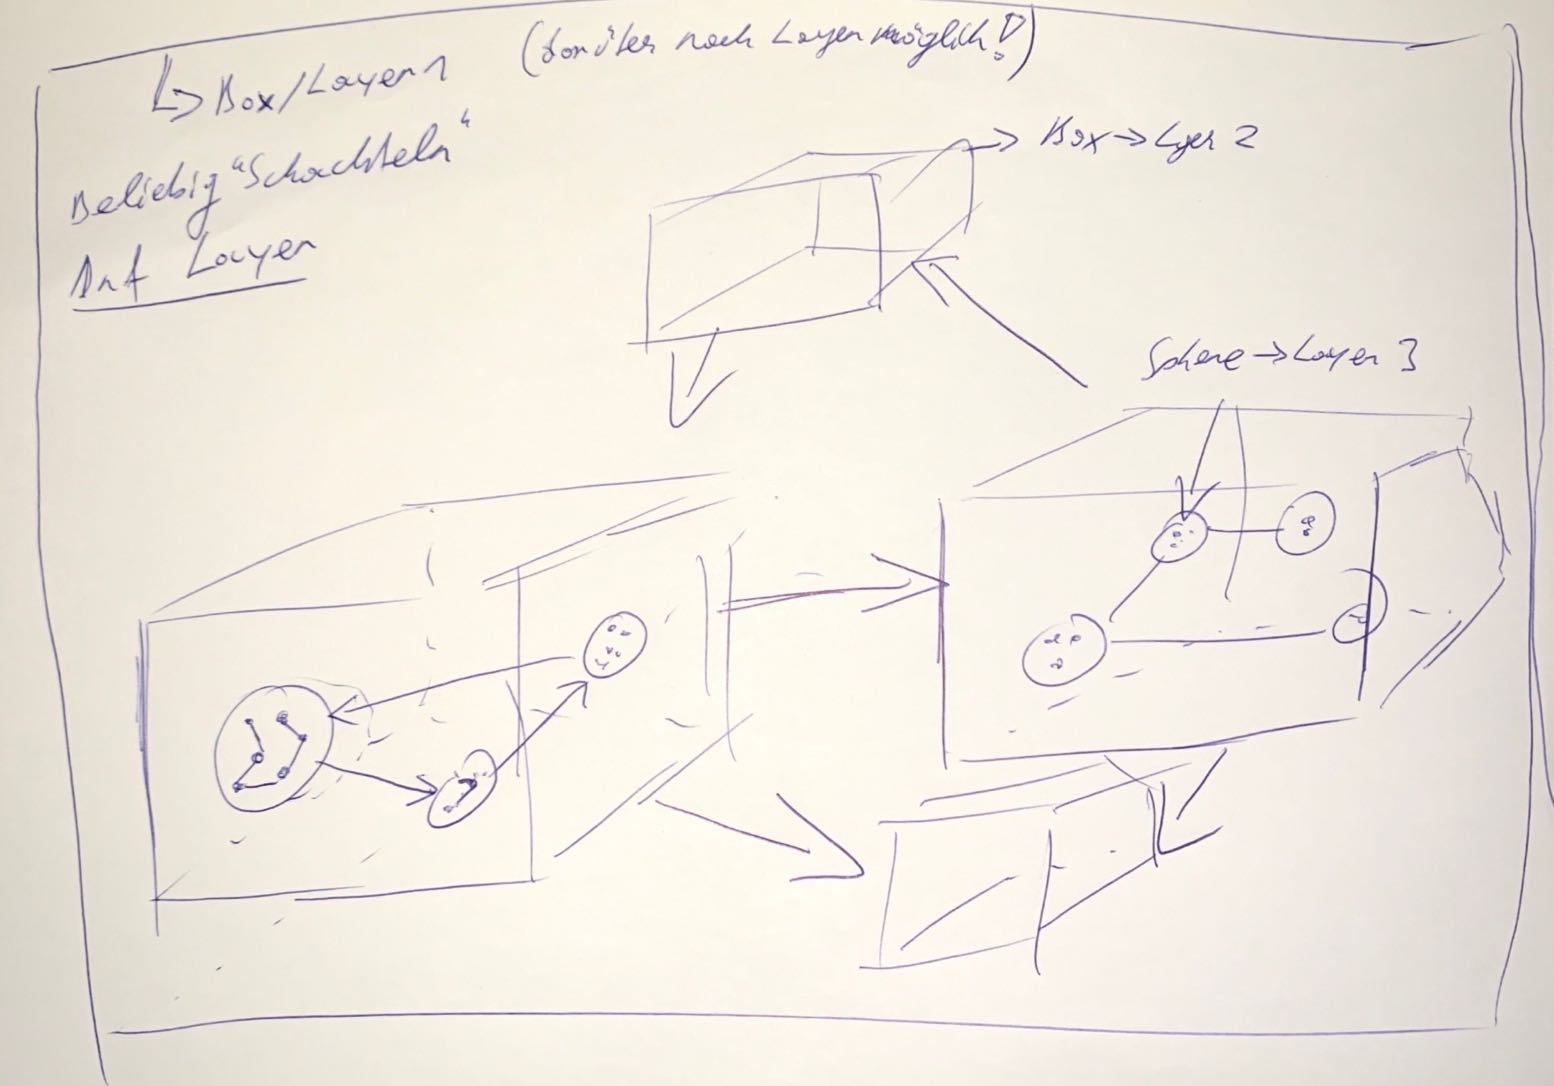 ↳ Box/Layer 1 (darüber noch Layer möglich!)
Beliebig "Schachteln"
→ Box → Lyer 2
Anz Layer
Sphere → Layer 3